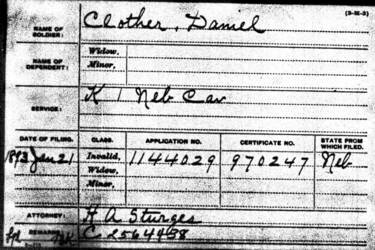 (3-M-3)
NAME OF SOLDIER: Clother, Daniel
NAME OF DEPENDENT: Widow,
Minor,
SERVICE: K 1 Neb Cav
DATE OF FILING. CLASS. APPLICATION NO. CERTIFICATE NO. STATE FROM WHICH FILED.
1893 Jan 21 Invalid, 1144029 970247 Neb
Widow,
Minor,
ATTORNEY: H A Sturges
REMARKS: C 2564458